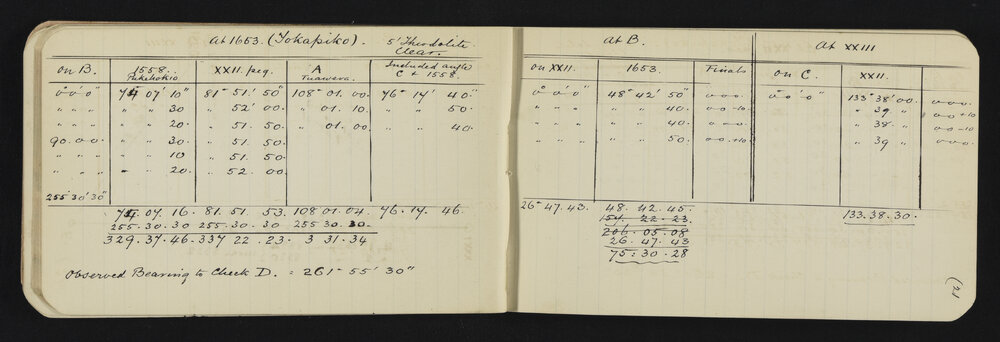 At 1653. (Tokapiko). 5" Theodolite.
Clear.
on B. 1558. XXII. peg. A Included angle
Pukehokio. Tuawera. C + 1558.
0° 0' 0" 74 07' 10" 81° 51' 50" 108° 01. 00. 76° 14' 40"
" " " " " 30 " 52' 00. " 01. 10. " " 50.
" " " " " 20. " 51. 50. " 01. 00. " " 40.
90. 00. " " 30. " 51 50.
" " " " 10 " 51. 50.
" " " " 20. " 52. 00.
255° 30' 30"
74. 07. 16. 81. 51. 53. 108 01. 04. 76. 14. 46.
255. 30. 30 255. 30. 30 255 30. 30.
329. 37. 46. 337 22. 23. 3 31. 34
Observed Bearing to Check D. = 261° 55' 30"
At B.
on XXII. 1653. Finals
0° 0' 0" 48° 42' 50" 0-0-0-
" " " " " 40. 0-0-10-
" " " " " 40. 0-0-0-
" " " " " 50. 0-0-+10
26° 47. 43. 48. 42. 45.
157. 22. 23.
206. 05. 08
26. 47. 43
75. 30. 28
At XXIII
on C. XXII.
0° 0' 0" 133° 38' 00. 0-0-0-
" 39 " 0-0+10
" 38. " 0-0-10
" 39 " 0-0-0-
133. 38. 30.
(2)